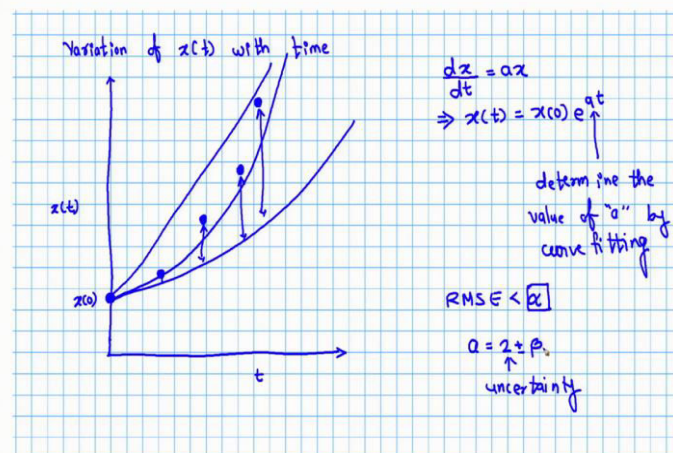 Variation of x(t) with time
x(t)
x(0)
t
dx/dt = ax
⇒ x(t) = x(0) e^at
determine the
value of "a" by
curve fitting
RMSE < α
a = 2 ± β
uncertainty